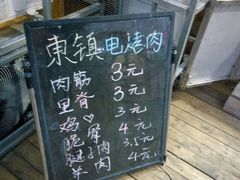 東镇电烤肉
肉筋 3元
里脊 3元
鸡♡ 3元
脆骨 4元
腿肉 3.5元
羊肉 4元